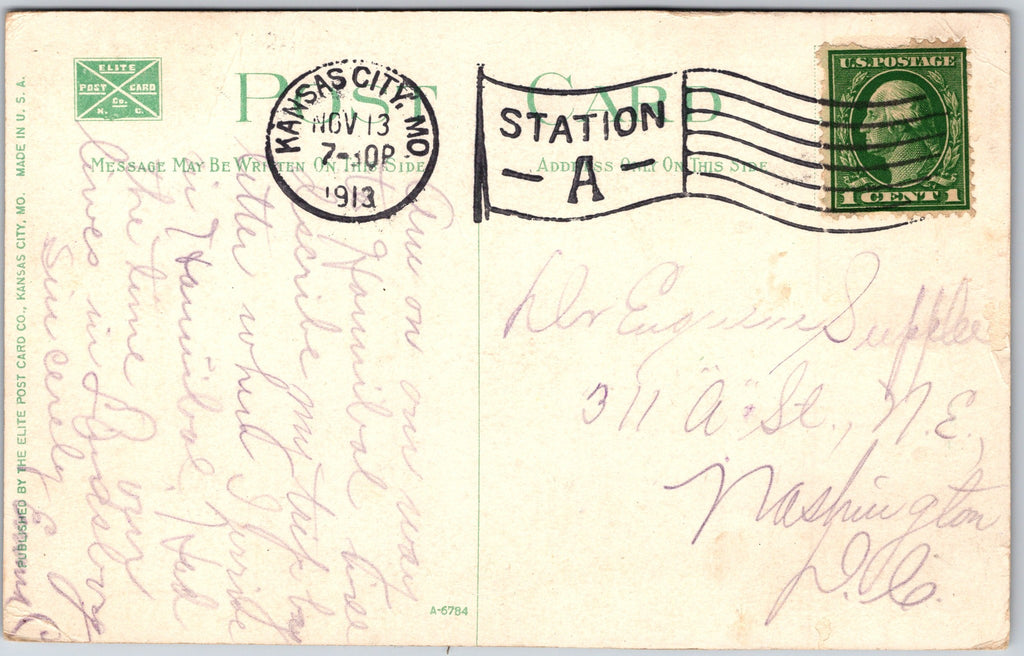 ELITE
POST CARD
Co.
K. C.
POST CARD
KANSAS CITY, MO.
NOV 13
7-30P
1913
STATION
- A -
U.S. POSTAGE
1 CENT 1
MESSAGE MAY BE WRITTEN ON THIS SIDE
ADDRESS ONLY ON THIS SIDE
PUBLISHED BY THE ELITE POST CARD CO., KANSAS CITY, MO. MADE IN U. S. A.
Am on our way
to Hannibal
describe my trip by
letter when I arrive
in Hannibal. Had
the time
lives in
Sincerely
Dr Eugene Supplee
311 "A" St., N.E.,
Washington
D.C.
A-6784